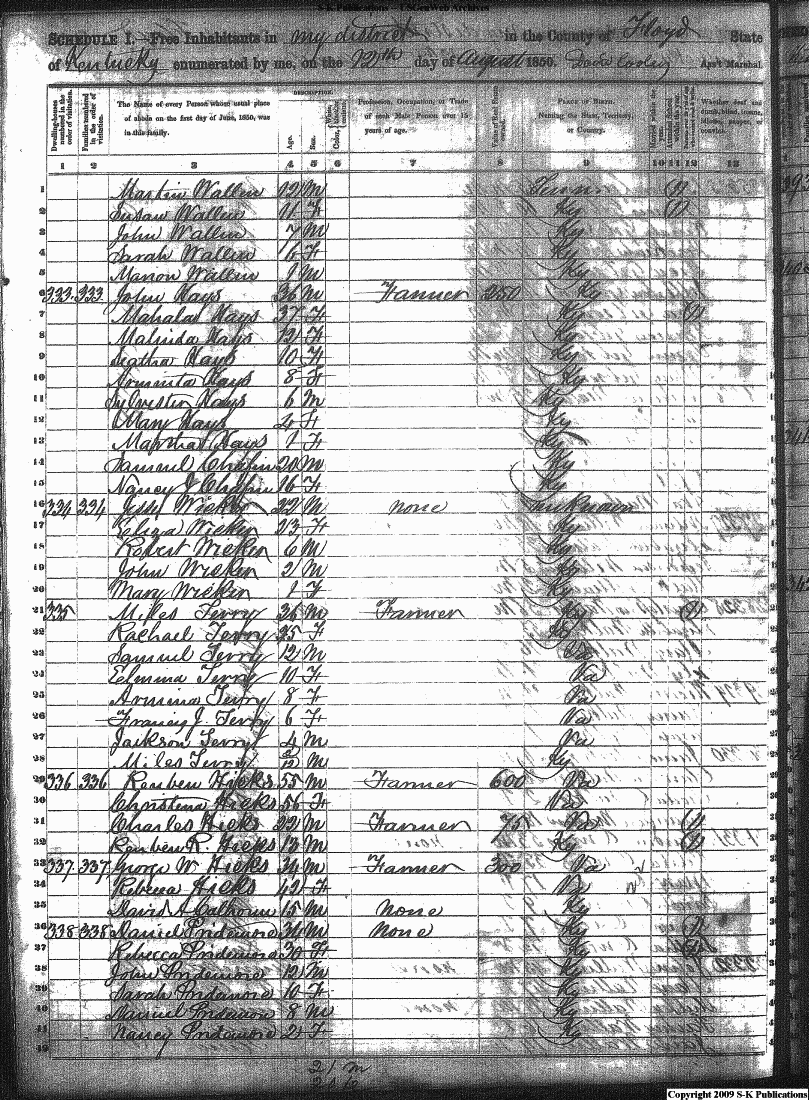 S-K Publications - USGenWeb Archives
SCHEDULE I.—Free Inhabitants in my district in the County of Floyd State
of Kentucky enumerated by me, on the 12th day of August 1850. Ass't Marshal.
DESCRIPTION.
Dwelling-houses numbered in the order of visitation.
Families numbered in the order of visitation.
The Name of every Person whose usual place of abode on the first day of June, 1850, was in this family.
Age.
Sex.
Profession, Occupation, or Trade of each Male Person over 15 years of age.
Value of Real Estate owned.
PLACE OF BIRTH. Naming the State, Territory, or Country.
1 2 3 4 5 6 7 8 9 10 11 12 13
1 Martin Wallen 12 M Tenn. 1
2 Susan Wallen 11 F Ky 1
3 John Wallen 7 M Ky
4 Sarah Wallen 6 F Ky
5 Marion Wallen 1 M Ky
6 333 333 John Hays 36 M Farmer 250 Ky
7 Mahala Hays 37 F Ky 1
8 Malinda Hays 12 F Ky
9 Hays 10 F Ky
10 Hays 8 F Ky
11 Sylvester Hays 6 M Ky
12 Mary Hays 4 F Ky
13 Marsha Hays 1 F Ky
14 Samuel 20 M Ky
15 Nancy J 16 F Ky
16 334 334 Jesse Wicker 22 M none unknown
17 Eliza Wicker 23 F Ky
18 Robert Wicker 6 M Ky
19 John Wicker 2 M Ky
20 Mary Wicker 1 F Ky
21 335 Miles Terry 36 M Farmer Ky 1
22 Rachael Terry 35 F Ky
23 Samuel Terry 12 M Va
24 Elmina Terry 10 F Va
25 Armina Terry 8 F Va
26 Francis J. Terry 6 F Va
27 Jackson Terry 4 M Va
28 Miles Terry M Ky
29 336 336 Reuben Hicks 55 M Farmer 600 Va
30 Christena Hicks 56 F Va
31 Charles Hicks 22 M Farmer 75 Va 1
32 Reuben R. Hicks 13 M Ky 1
33 337 337 George W Hicks 34 M Farmer 300 Va
34 Rebecca Hicks 42 F Va
35 David A Calhoun 15 M none Ky
36 338 338 Daniel Pridemore 36 M none Ky 1
37 Rebecca Pridemore 30 F Ky
38 John Pridemore 12 M Ky
39 Sarah Pridemore 10 F Ky
40 Pridemore 8 M Ky
41 Nancy Pridemore 2 F Ky
42
21 m
Copyright 2009 S-K Publications